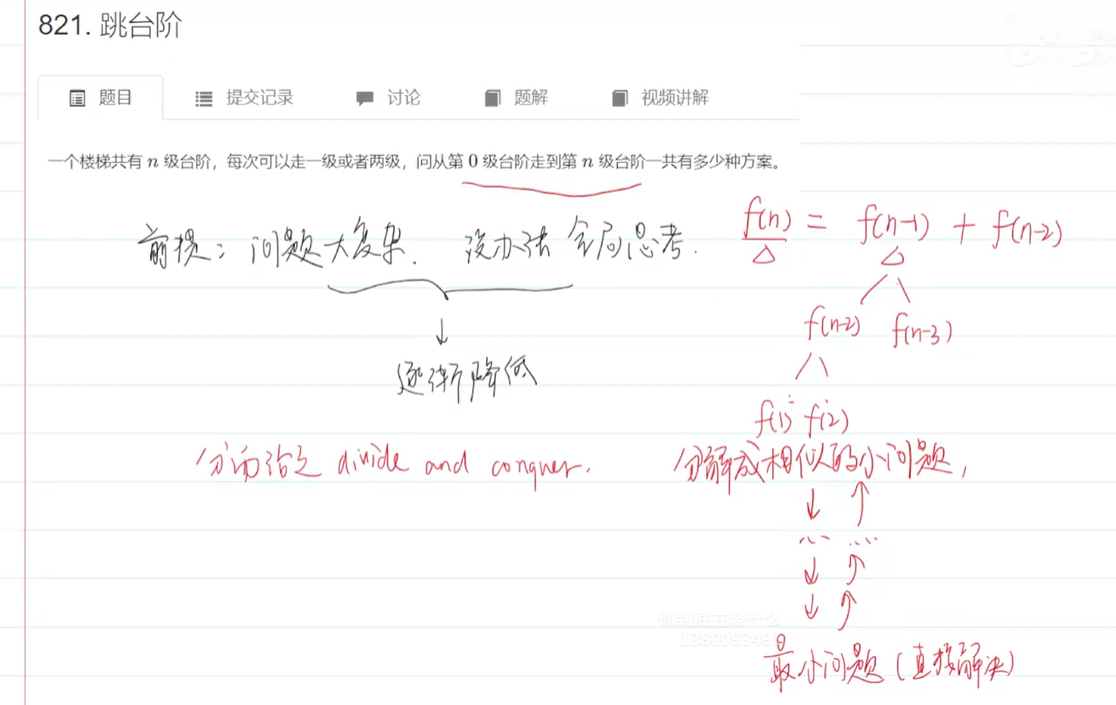 821. 跳台阶
题目 提交记录 讨论 题解 视频讲解
一个楼梯共有 n 级台阶，每次可以走一级或者两级，问从第 0 级台阶走到第 n 级台阶一共有多少种方案。
f(n) = f(n-1) + f(n-2)
前提: 问题太复杂. 没办法全局思考.
f(n-2) f(n-3)
逐渐降低
f(1) f(2)
分而治之 divide and conquer.
分解成相似的小问题,
最小问题 (直接解决)